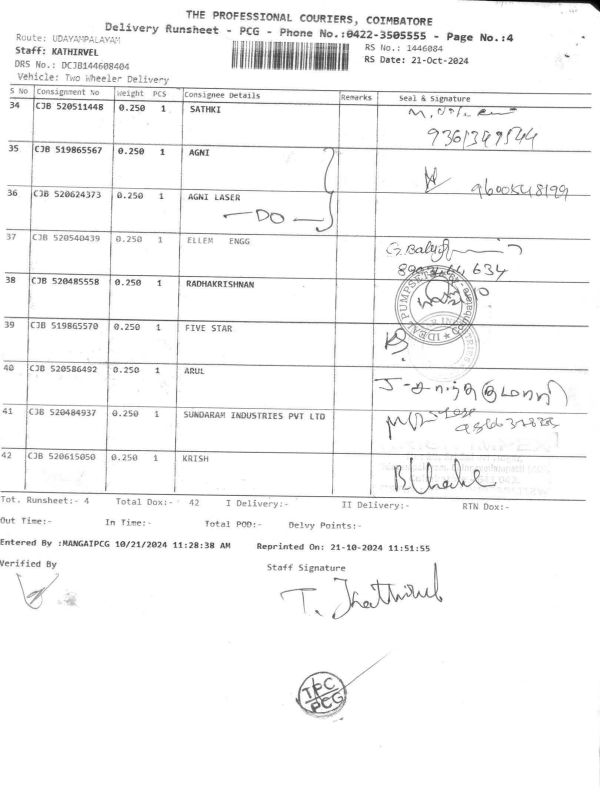 THE PROFESSIONAL COURIERS, COIMBATORE
Delivery Runsheet - PCG - Phone No.:0422-3505555 - Page No.:4
Route: UDAYAMPALAYAM
RS No.: 1446084
Staff: KATHIRVEL
RS Date: 21-Oct-2024
DRS No.: DCJB144608404
Vehicle: Two Wheeler Delivery
S No Consignment No Weight PCS Consignee Details Remarks Seal & Signature
34 CJB 520511448 0.250 1 SATHKI
9361349544
35 CJB 519865567 0.250 1 AGNI
9600548199
36 CJB 520624373 0.250 1 AGNI LASER
—DO—
37 CJB 520540439 0.250 1 ELLEM ENGG
634
38 CJB 520485558 0.250 1 RADHAKRISHNAN
IDEAL PUMPSET
39 CJB 519865570 0.250 1 FIVE STAR
40 CJB 520586492 0.250 1 ARUL
41 CJB 520484937 0.250 1 SUNDARAM INDUSTRIES PVT LTD
42 CJB 520615050 0.250 1 KRISH
Tot. Runsheet:- 4 Total Dox:- 42 I Delivery:- II Delivery:- RTN Dox:-
Out Time:- In Time:- Total POD:- Delvy Points:-
Entered By :MANGAIPCG 10/21/2024 11:28:38 AM Reprinted On: 21-10-2024 11:51:55
Verified By
Staff Signature
T. Kathirvel
TPC
PCG